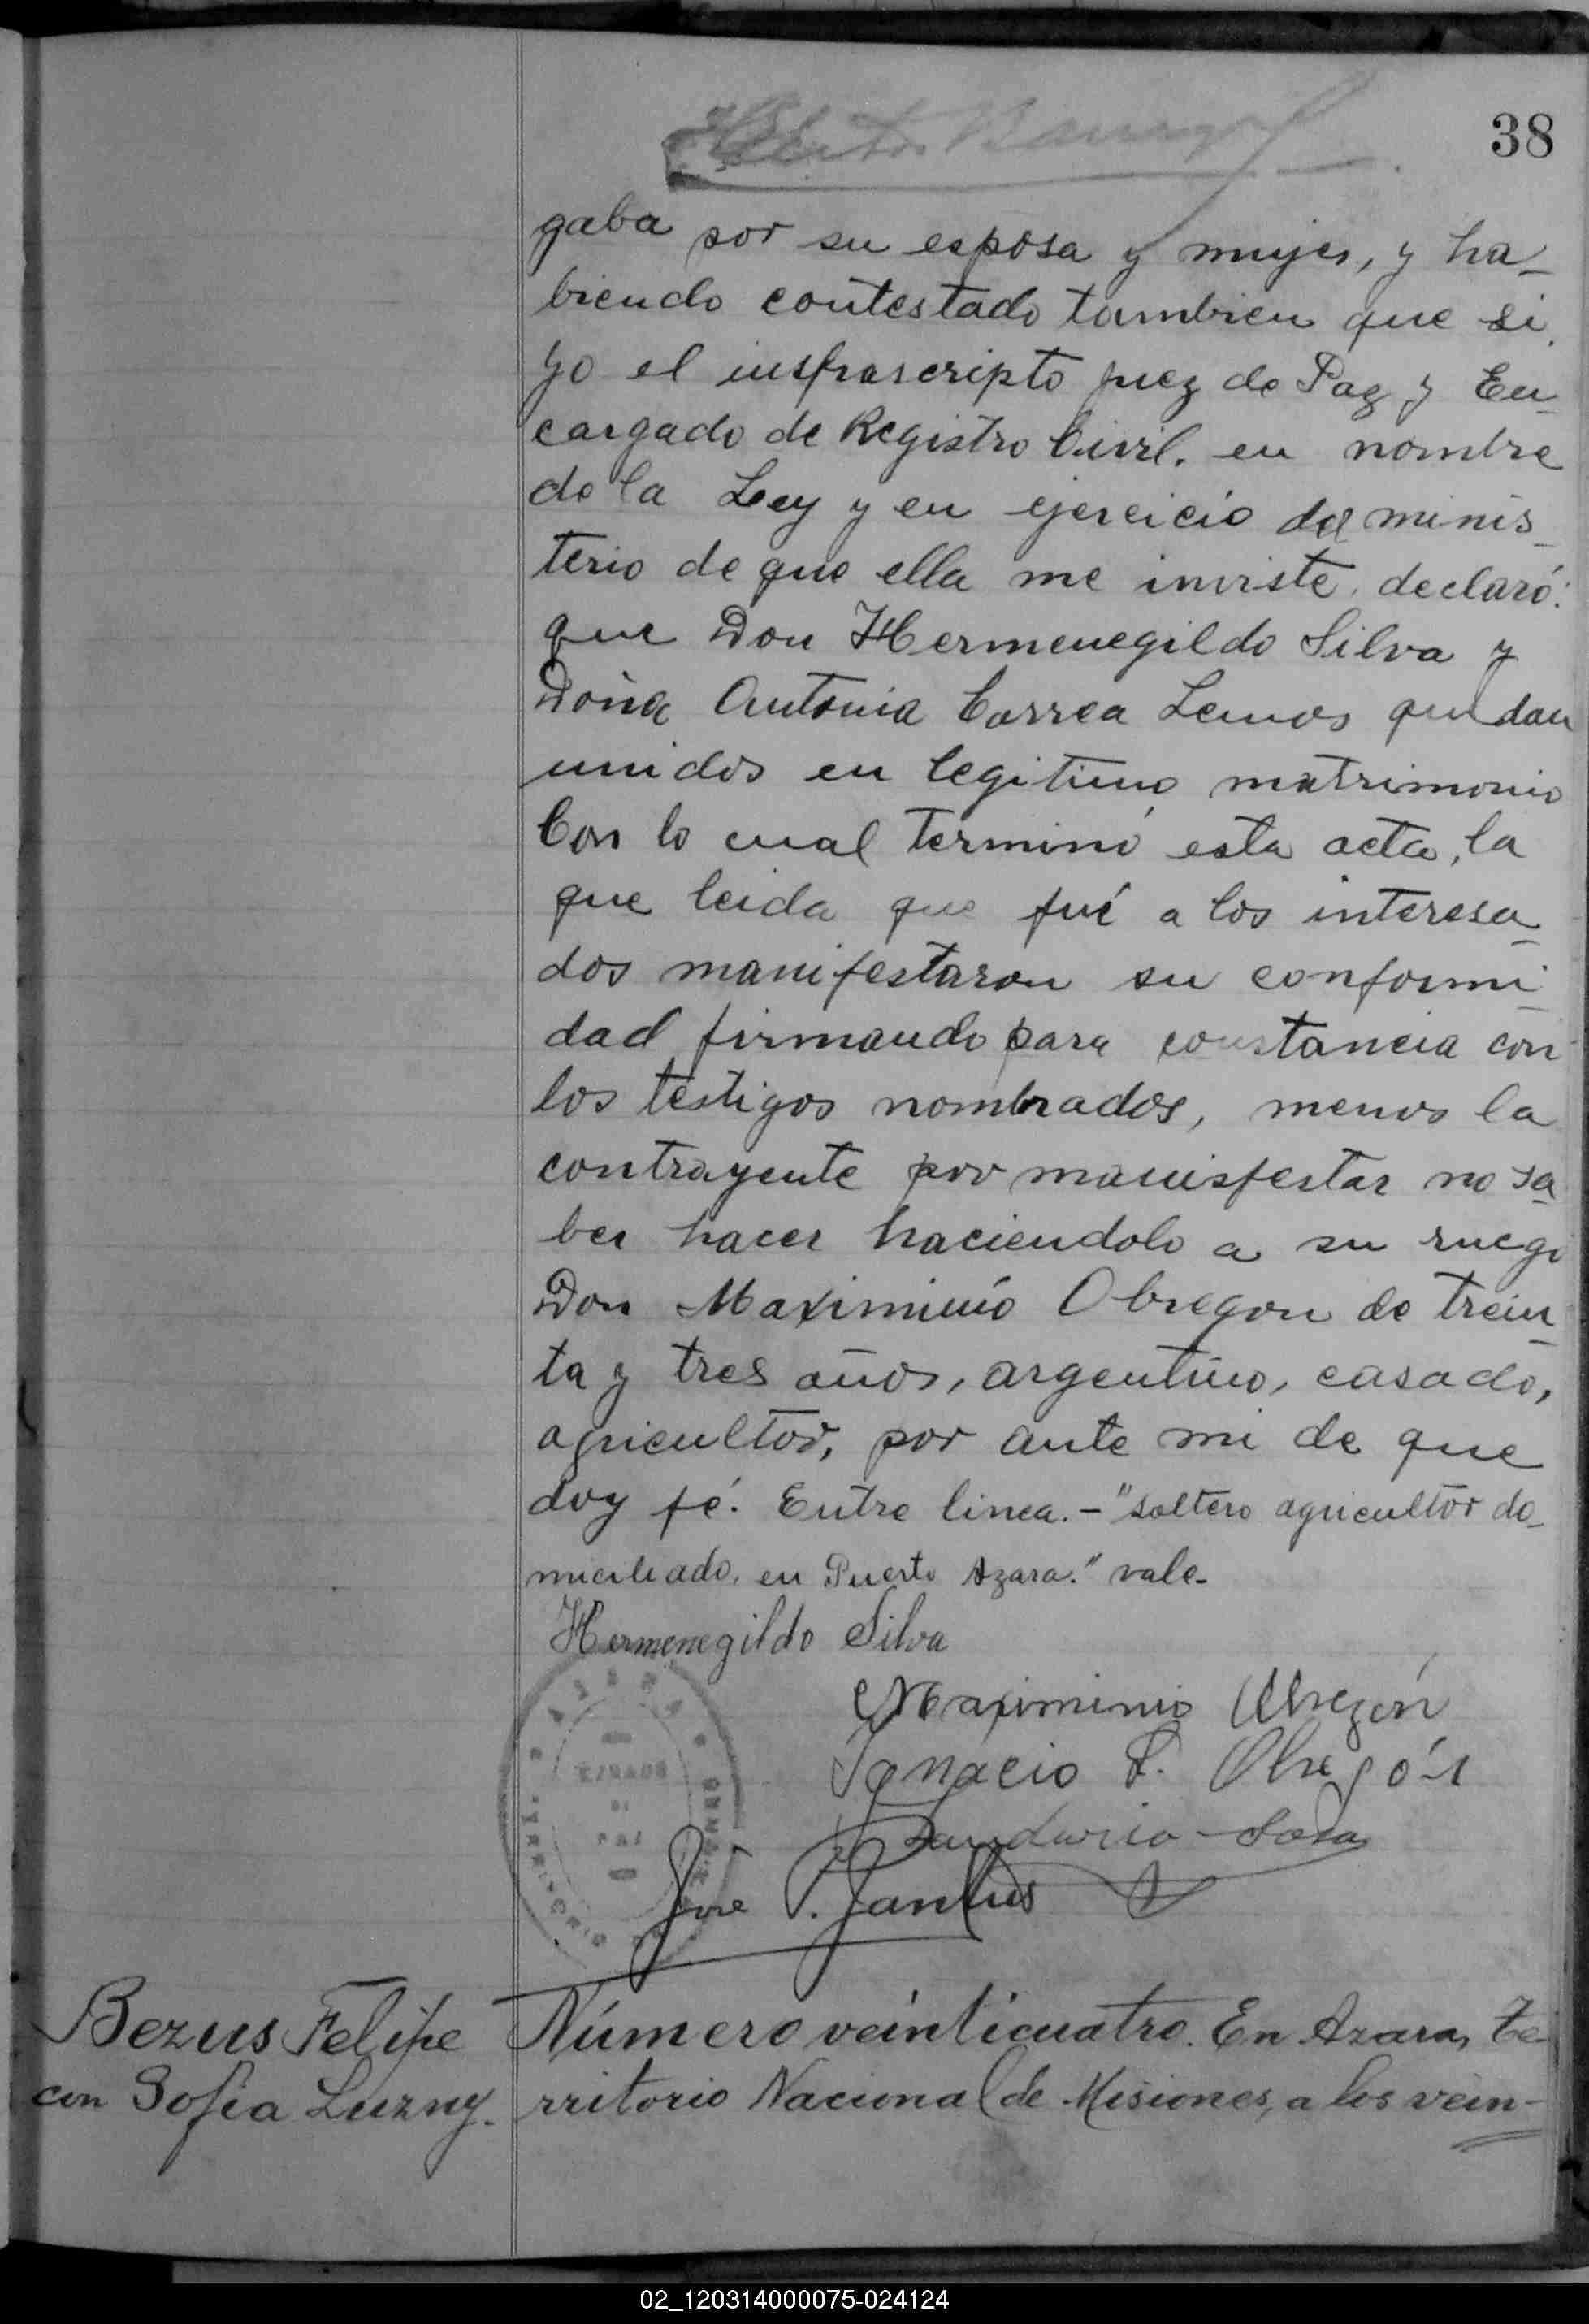 38
gaba por su esposa y mujer, y ha_
biendo contestado tambien que si.
yo el insfrascripto juez de Paz y En_
cargado de Registro Civil, en nombre
de la Ley y en ejercicio del minis_
terio de que ella me inviste, declaró:
que Don Hermenegildo Silva y
Doña Antonia Correa Lemos quedan
unidos en legitimo matrimonio
Con lo cual terminó esta acta, la
que leida que fué a los interesa_
dos manifestaron su conformi_
dad firmando para constancia con
los testigos nombrados, menos la
contrayente por manisfestar no sa_
ber hacer haciendolo a su ruego
Don Maximinio Obregon de trein_
ta y tres años, argentino, casado,
agricultor, por ante mi de que
doy fé. Entre linea.- "soltero agricultor do_
miciliado, en Puerto Azara." vale-
Hermenegildo Silva
Maximinio Obregón
Ignacio F. Obregón
Sosa
José P. Santus
Bezus Felipe
con Sofia Luzny.
Número veinticuatro. En Azara, Te-
rritorio Nacional de Misiones, a los vein-
02_120314000075-024124